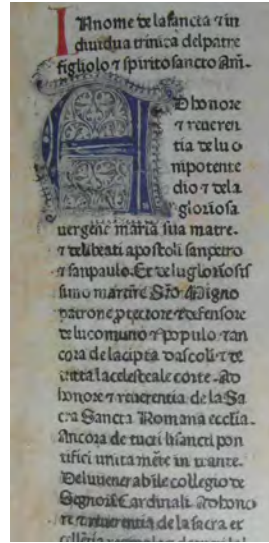 In nome de la sancta ⁊ in
diuidua trinita del patre
figliolo ⁊ spirito sancto Am̄.
AD honore
⁊ reueren
tia de lu o
nipotente
dio ⁊ de la
gloriosa
uergene maria sua matre.
⁊ deli beati apostoli san petro
⁊ san paulo. Et de lu gloriosis
simo martire Sc̄o Migno
patrone protectore ⁊ defensore
de lu comuno ⁊ populo. ⁊ an
cora de la cipta dascoli ⁊ de
tutta la celesteale corte. Ad
honore ⁊ reuerentia de la Sa
cra Sancta Romana ecclia.
Ancora de tucti li sancti pon
tifici
Del uenerabile collegio de
Segnori Cardinali. Ad hono
re ⁊ reuerentia de la sacra et